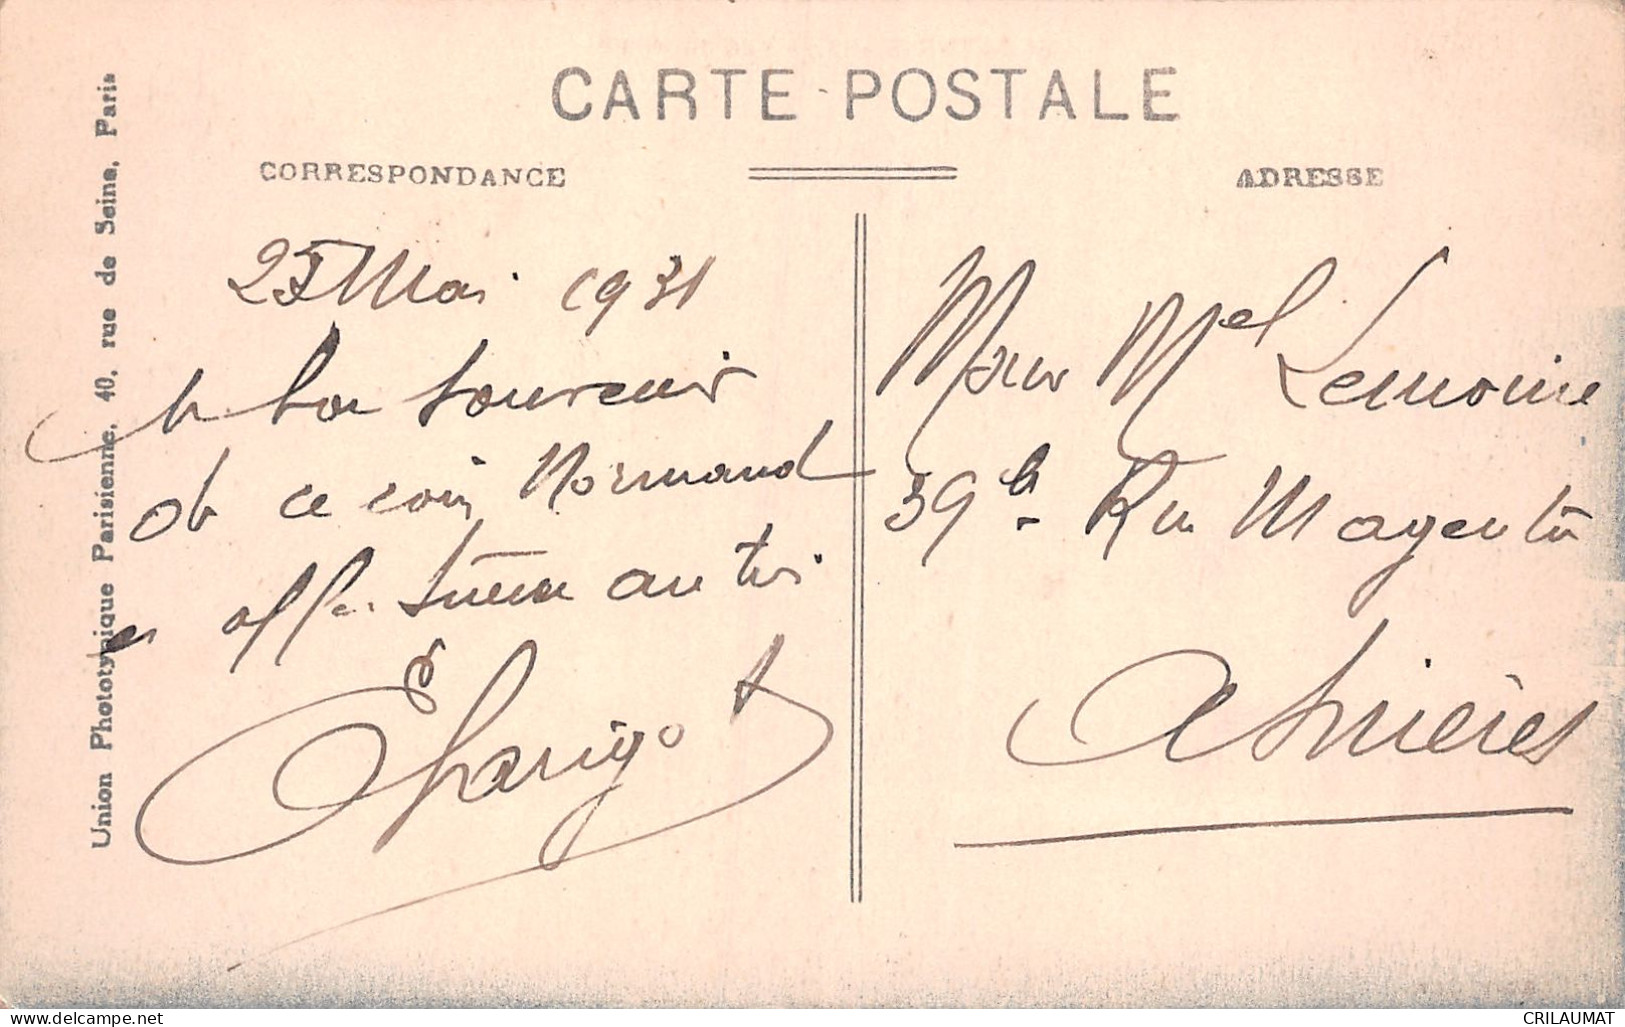 CARTE POSTALE
CORRESPONDANCE
ADRESSE
Union Phototypique Parisienne, 40, rue de Seine, Paris
25 Mai 1931
bon souvenir
de ce coin Normand
et aff. sincère
Mr Mel Lemoine
39 b. Rue Magenta
Asnières
www.delcampe.net
CRILAUMAT